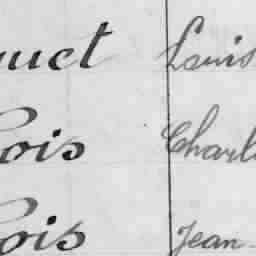 uct Louis
ois Charl
ois Jean-